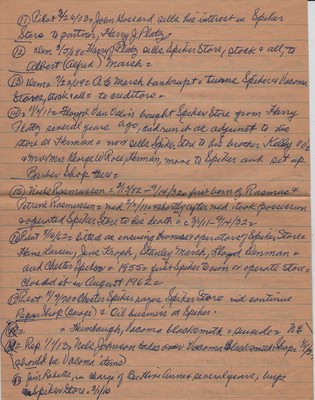 (11) Pilot 3/26/03 = John Hossard sells his interest in Spiker
Store to partner, Harry J. Plotz
(12) Dem 9/3/08 = Harry Plotz sells Spiker Store, stock & all, to
Albert (Alfred) Marsh =
(13) Dem = 7/22/09 = A. E. Marsh bankrupt = turns Spiker & Vacoma
Stores, stock & all = to creditors =
(14) = 1/4/11 = Floyd Van Valin bought Spiker Store from Harry
Plotz several years ago, and run it as adjunct to his
store at Herman = now sells Spiker Store to his brother Kelly VV
= Mr & Mrs George W Rose, Herman, move to Spiker and set up
Barber Shop there =
(15) Nels Rasmussen = 9/17/82 - 9/14/22 = first born of Rasmus &
Petrine Rasmussen = md 1/11/11 = shortly after md took possession
& operated Spiker Store to his death = 2/4/11 - 9/14/22 =
(16) Pilot 9/6/62 = listed as ensuing owners & operators of Spiker Store =
Hans Larsen, Jens Groph, Stanley Marsh, Lloyd Denman =
and Chester Spiker = 1955 = first Spiker to own or operate store =
closed it in August 1962 =
(17) Pilot 1/7/70 = Chester Spiker razes Spiker Store and continue
Repair Shop (Garage) & Oil business at Spiker
(18) = = Humbaugh, Vacoma blacksmith = N E
(19) = Rep 1/4/13, Nels Johnson takes over Vacoma Blacksmith Shop =
should be Vacoma items)
Jim Roberts, in charge of several years, buys
Spiker Store = 2/1/10